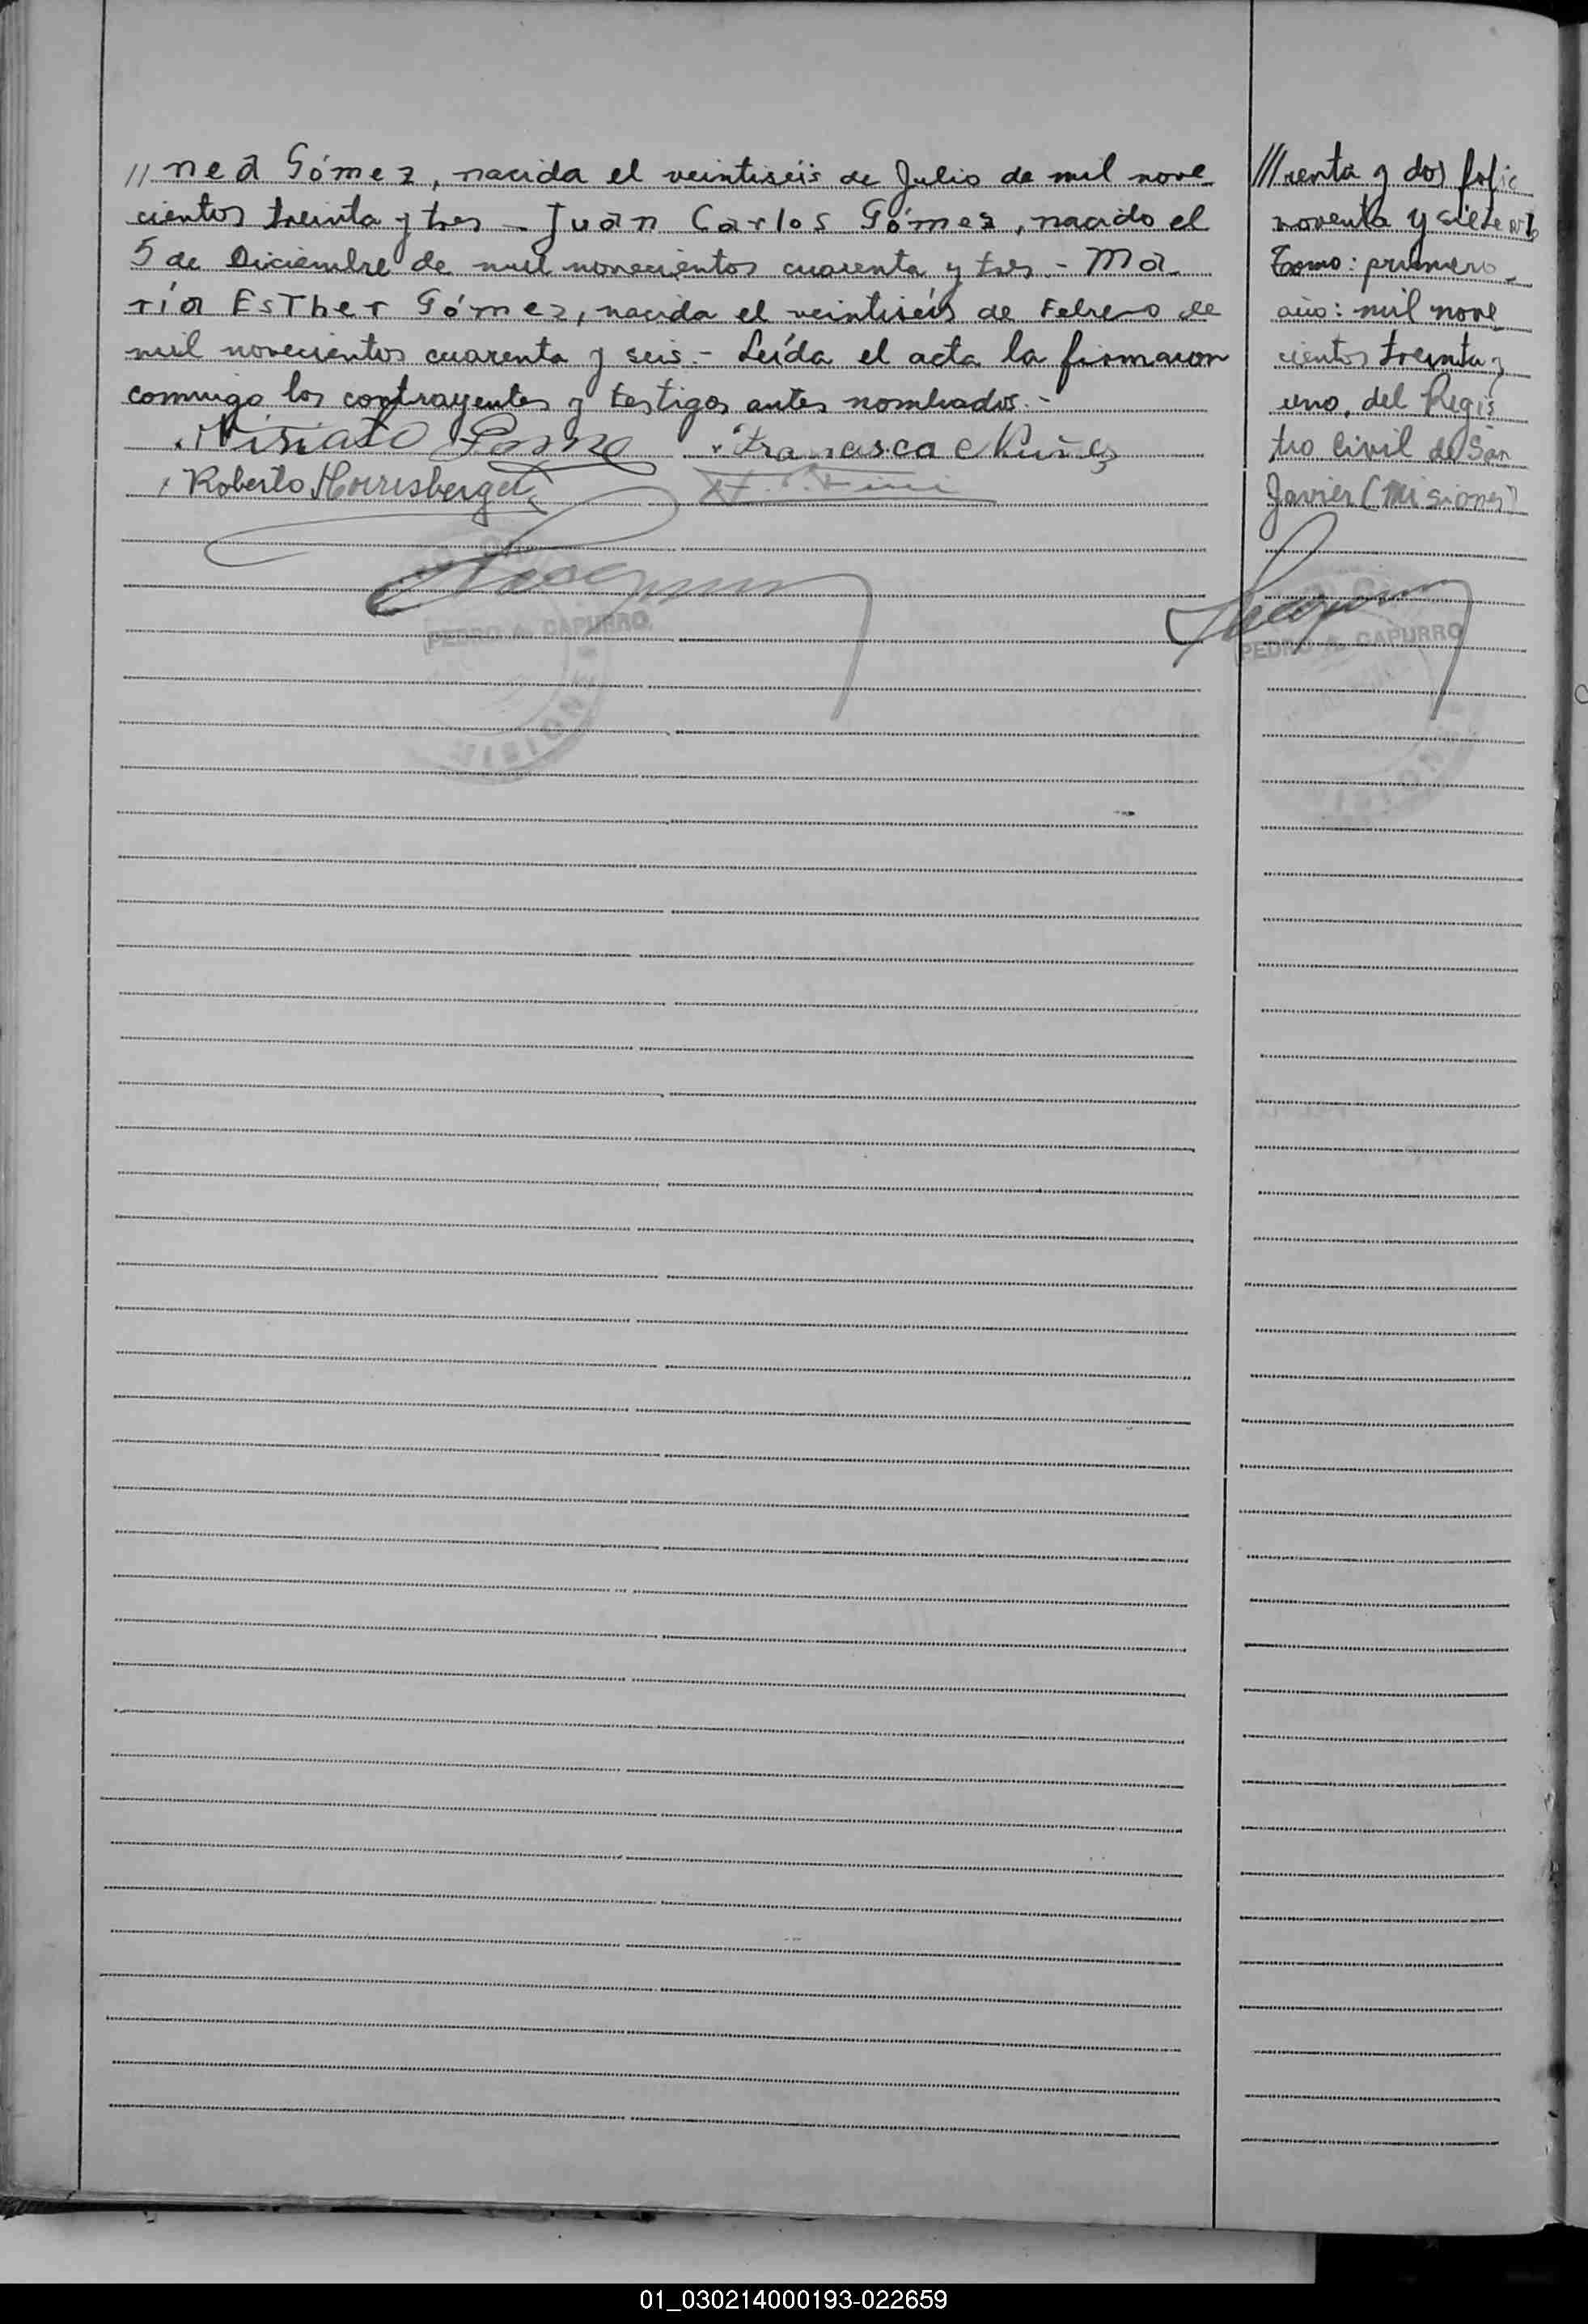 // nea Gómez, nacida el veintiséis de Julio de mil nove
cientos treinta y tres - Juan Carlos Gómez, nacido el
5 de Diciembre de mil novecientos cuarenta y tres.- Ma
ría Esther Gómez, nacida el veintiséis de Febrero de
mil novecientos cuarenta y seis.- Leída el acta la firmaron
conmigo los contrayentes y testigos antes nombrados.-
Francisca
Roberto
PEDRO A. CAPURRO
MISIONES
/// renta y dos folio
noventa y siete
Tomo: primero
año: mil nove
cientos treinta y
uno, del Regis
tro Civil de San
Javier (Misiones)
PEDRO A. CAPURRO
01_030214000193-022659